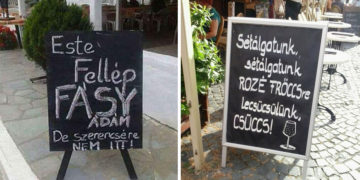 Este
Fellép
FÁSY
ÁDÁM
De szerencsére
NEM ITT!
Sétálgatunk,
sétálgatunk
ROZÉ FRÖCCSre
lecsücsülünk,
CSÜCCS!